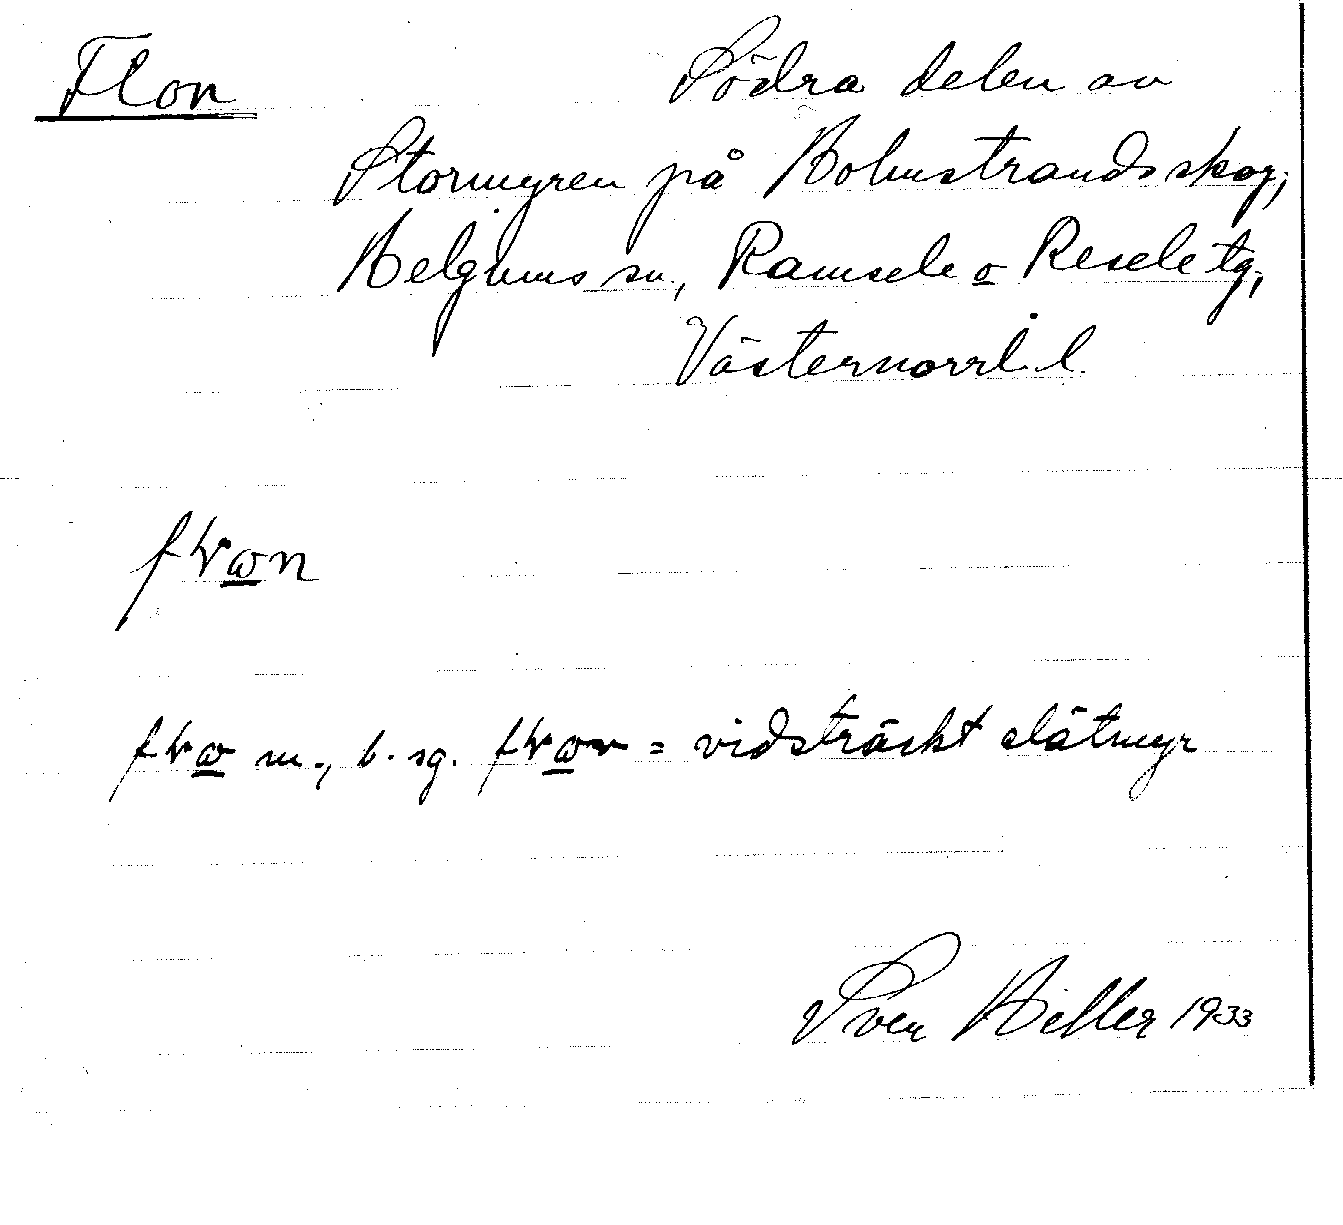 Flon
Södra delen av
Stormyren på Holmstrandsskog,
Helgums sn, Ramsele o Resele tg,
Västernorrl. l.
m., b. sg. = vidsträckt slåtmyr
Sven Hiller 1933